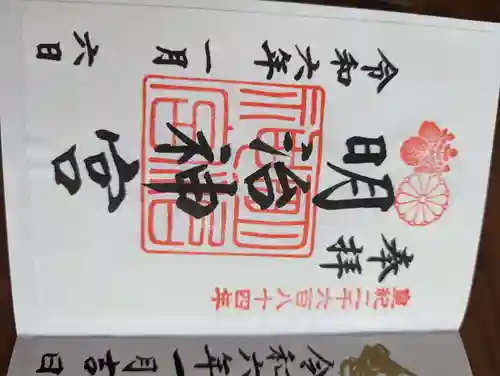 令和六年一月吉日
皇紀二千六百八十四年
奉拝
明治神宮
令和六年一月六日